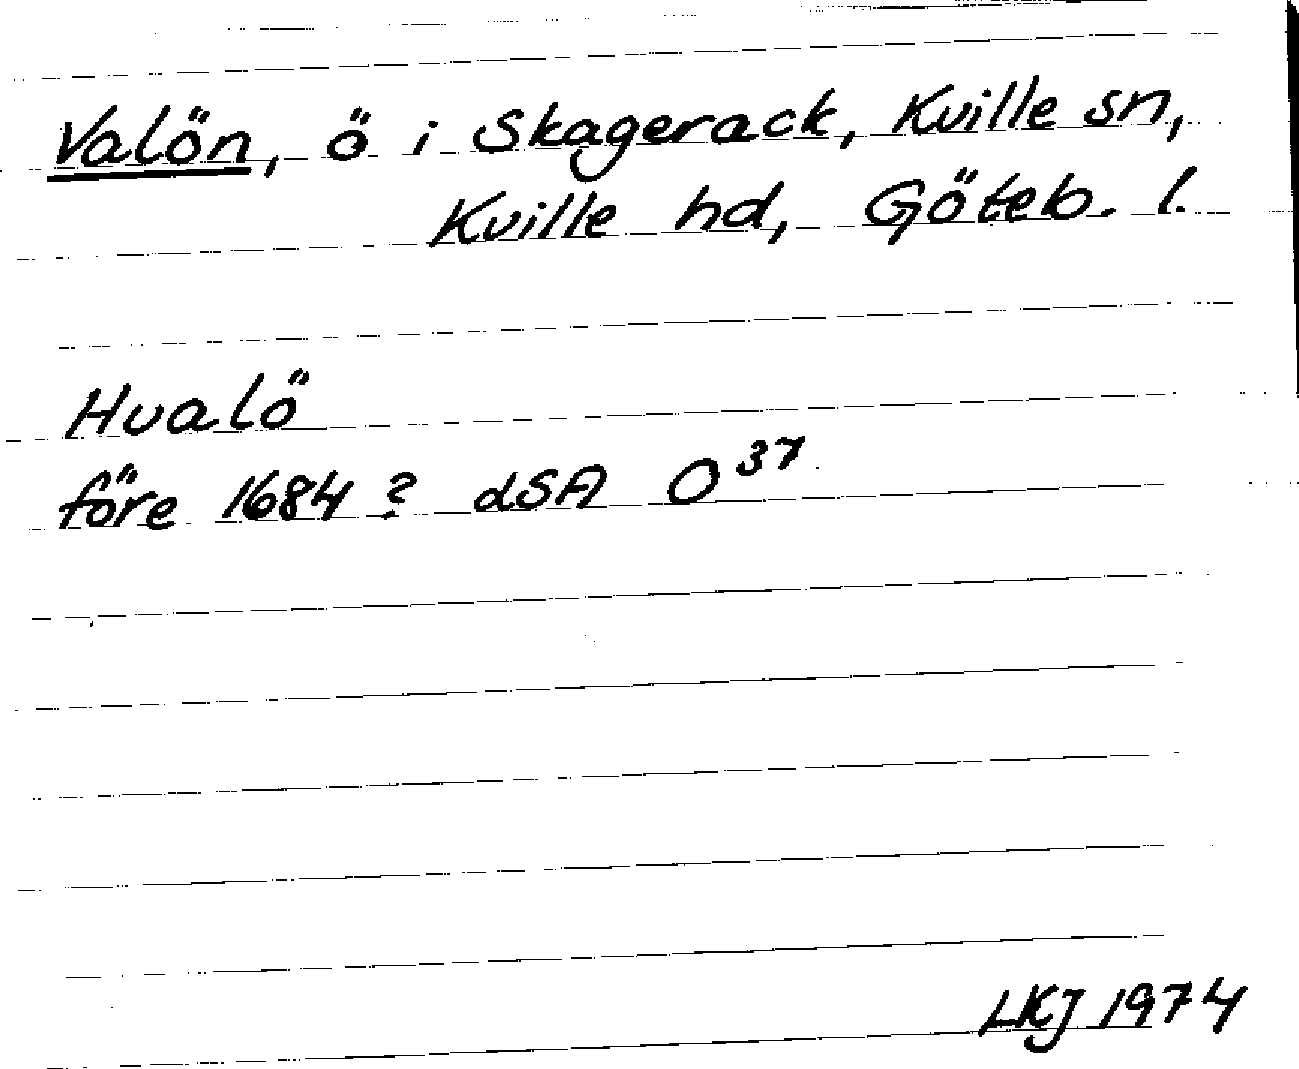 Valön, ö i Skagerack, Kville sn,
Kville hd, Göteb. l.
Hualö
före 1684? dSA O 37
LKJ 1974